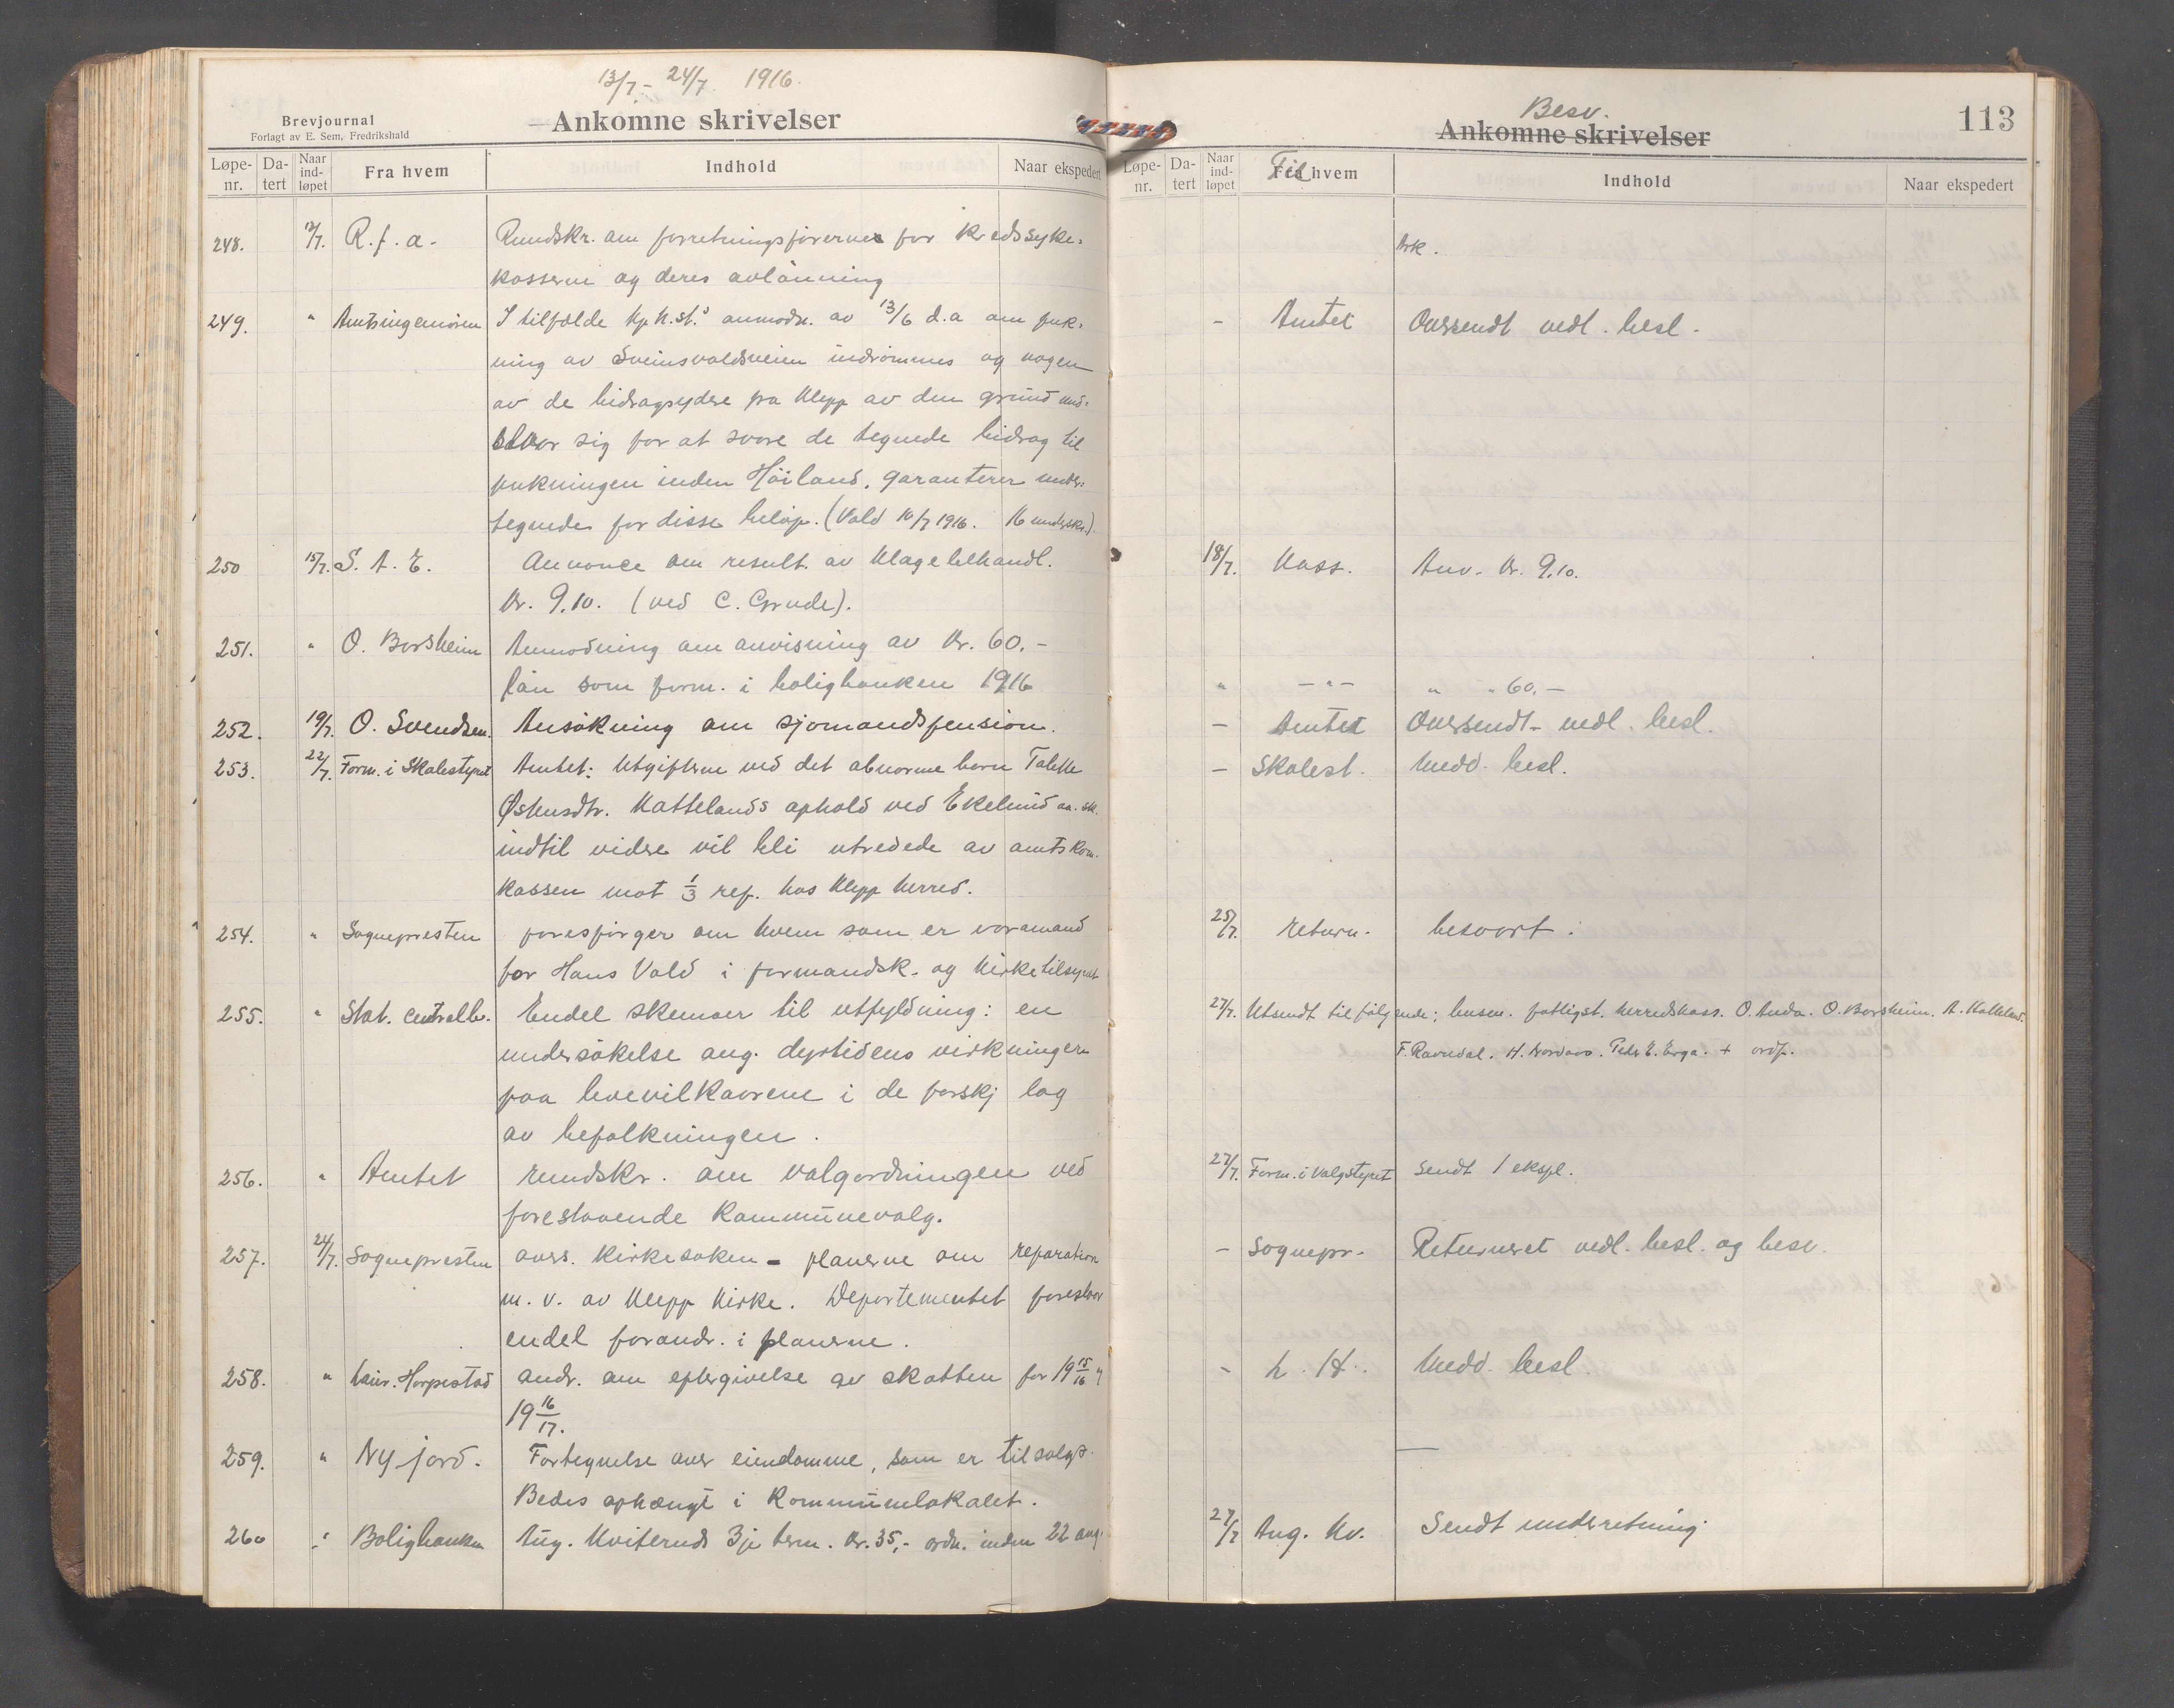 13/7 - 24/7 1916.
Brevjournal
Forlagt av E. Sem, Fredrikshald
Ankomne skrivelser
Løpe-nr. Da-tert Naar ind-løpet Fra hvem Indhold Naar ekspedert
248. 13/7. R.f.a. Rundskr. om forretningsførerne for Kredssyke-
kasserne og deres avlönning
249. " Amtsingeniøren I tilfælde Kp. h.st.s anmodn. av 13/6 d.a om puk-
ning av Sveinsvoldsveien indrömmes og nogen
av de bidragsydere fra Klepp av den grund und-
slaar sig for at svare de tegnede bidrag til
pukningen inden Höiland, garanterer under-
tegnede for disse beløp. (Vold 10/7 1916. 16 underskr.).
250 15/7. S. A. E. Annonce om result. av Klagebehandl.
Kr. 9.10. (ved C. Grude).
251. " O. Borsheim Anmodning om anvisning av Kr. 60.-
lön som form. i boligbanken 1916
252. 19/7. O. Svendsen. Ansökning om sjömandspension.
253. 22/7. Form. i Skolestyret Amtet: Utgifterne ved det abnorme barn Talette
Østensdtr. Kattelands ophold ved Ekelund aa. sk.
indtil videre vil bli utredede av amtskom.
kassen mot 1/3 ref. hos Klepp herred.
254. " Sognepresten forespörger om hvem som er voramand
for Hans Vold i formandsk. og Kirketilsynet
255. " Stat. centralb. Endel skemaer til utfyldning: en
undersökelse ang. dyrtidens virkninger
paa levevilkaarene i de forskj lag
av befolkningen.
256. " Amtet rundskr. om valgordningen ved
forestaaende Kommünevalg.
257. 24/7. Sognepresten overs. Kirkesaken - planerne om reparation
m. v. av Klepp Kirke. Departementet foreslaar
endel forandr. i planerne.
258. " Laur. Horpestad andr. om eftergivelse av skatten for 19 15/16 og
19 16/17.
259. " Ny jord. Fortegnelse over eiendomme, som er tilsalgs.
Bedes ophængt i Kommünelokalet.
260 " Boligbanken Aug. Kviterud 3je term. Kr. 35,- ordn. inden 22 aug.
113
Besv.
Ankomne skrivelser
Løpe-nr. Da-tert Naar ind-løpet Til Fra hvem Indhold Naar ekspedert
Ark.
- Amtet Oversendt vedl. besl.
18/7. Kass. Anv. Kr. 9.10.
" -"- " " 60.-
- Amtet Oversendt vedl. besl.
- Skolest. Medd. besl.
25/7. return. besvart:
27/7. Utsendt til fölgende: lensm. fattigst. herredskass. O. Anda. O. Borsheim. A. Katteland.
F. Ravndal. H. Nordaas. Peder E. Erga. + ordf.
27/7. Form. i Valgstyret sendt 1 ekspl.
- sognepr. Returneret vedl. besl. og besv.
- L. H. Medd. besl.
—
27/7 Aug. Kv. Sendt underretning